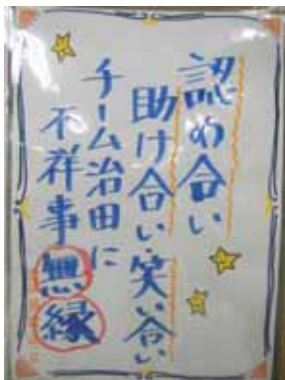 認め合い
助け合い・笑い合い
チーム治田に
不祥事無縁